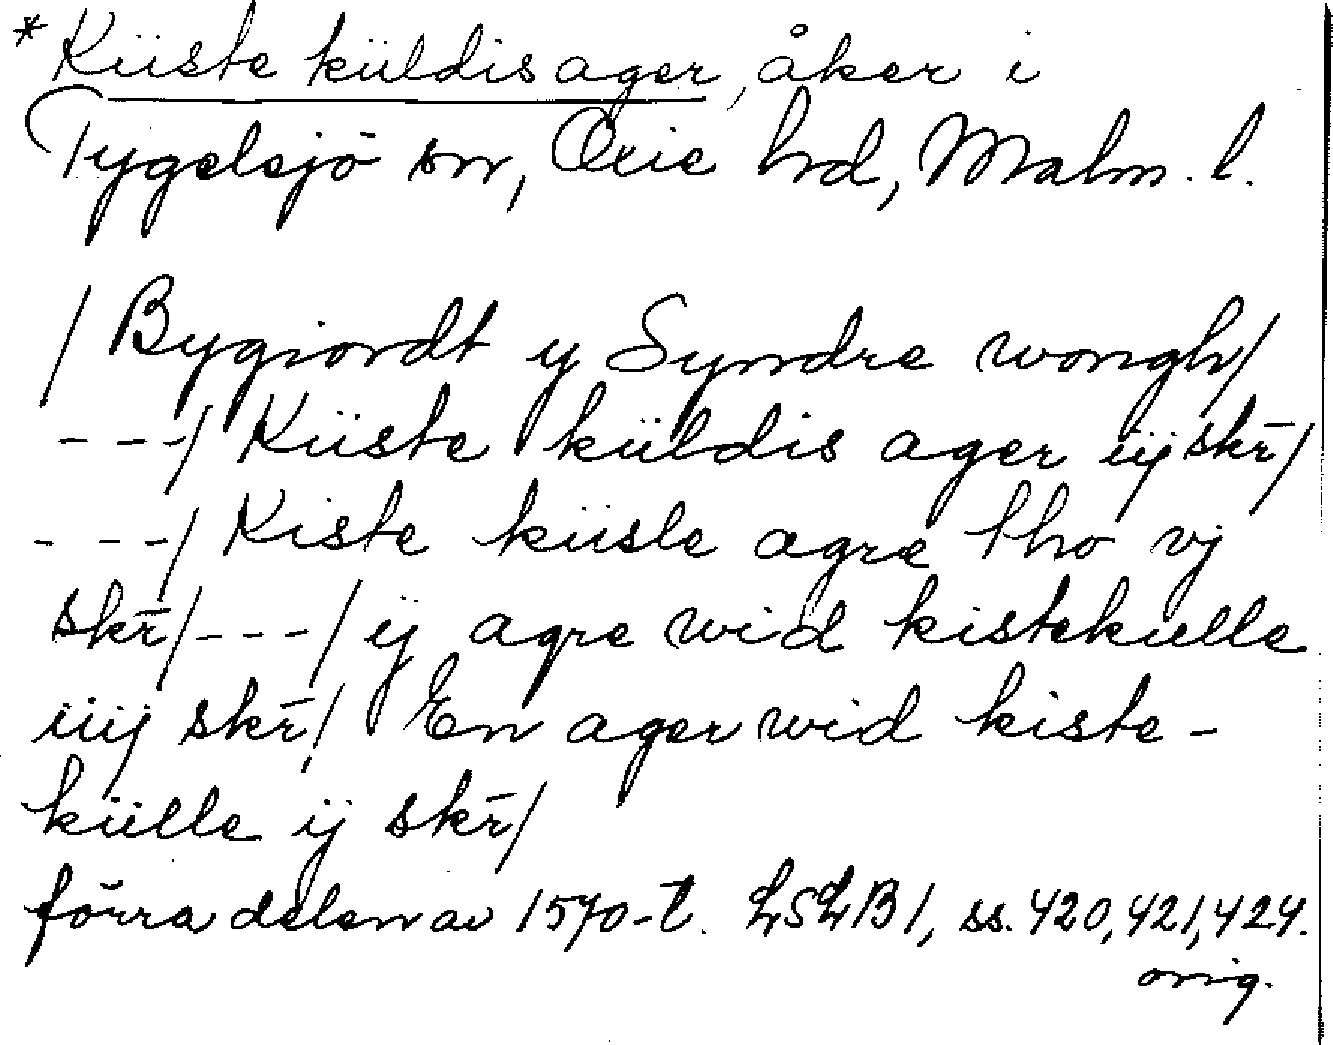 * Küste küldis ager, åker i
Tygelsjö sn, Oxie hd, Malm. l.
/ Bygiordt y Syndre wongh/
- - -/ Küste küldis ager iij skr̄/
- - -/ Kiste küsle agre tho vj
skr̄/- - -/ ij agre wid kistekulle
iiij skr̄/ En ager wid kiste-
külle ij skr̄/
förra delen av 1570-t. LSLB 1, ss. 420, 421, 424.
orig.